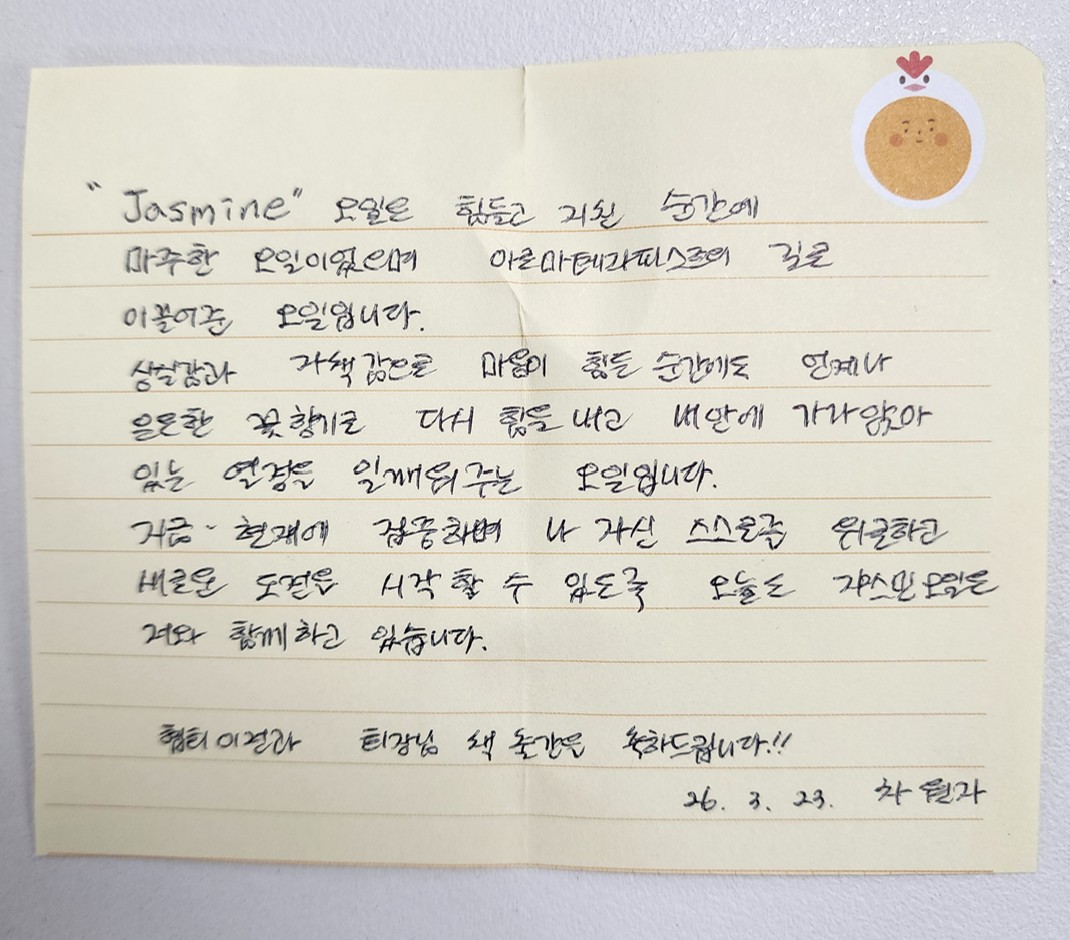 "Jasmine" 오일은 힘들고 지친 순간에
마주한 오일이였으며 아로마테라피스트의 길로
이끌어준 오일입니다.
상실감과 자책감으로 마음이 힘든 순간에도 언제나
은은한 꽃향기로 다시 힘을 내고 내 안에 가라앉아
있는 열정을 일깨워주는 오일입니다.
지금-현재에 집중하며 나 자신 스스로를 위로하고
새로운 도전을 시작할 수 있도록 오늘도 쟈스민 오일은
저와 함께하고 있습니다.
협회 이전과 회장님 책 출간을 축하드립니다!!
26. 3. 23. 차